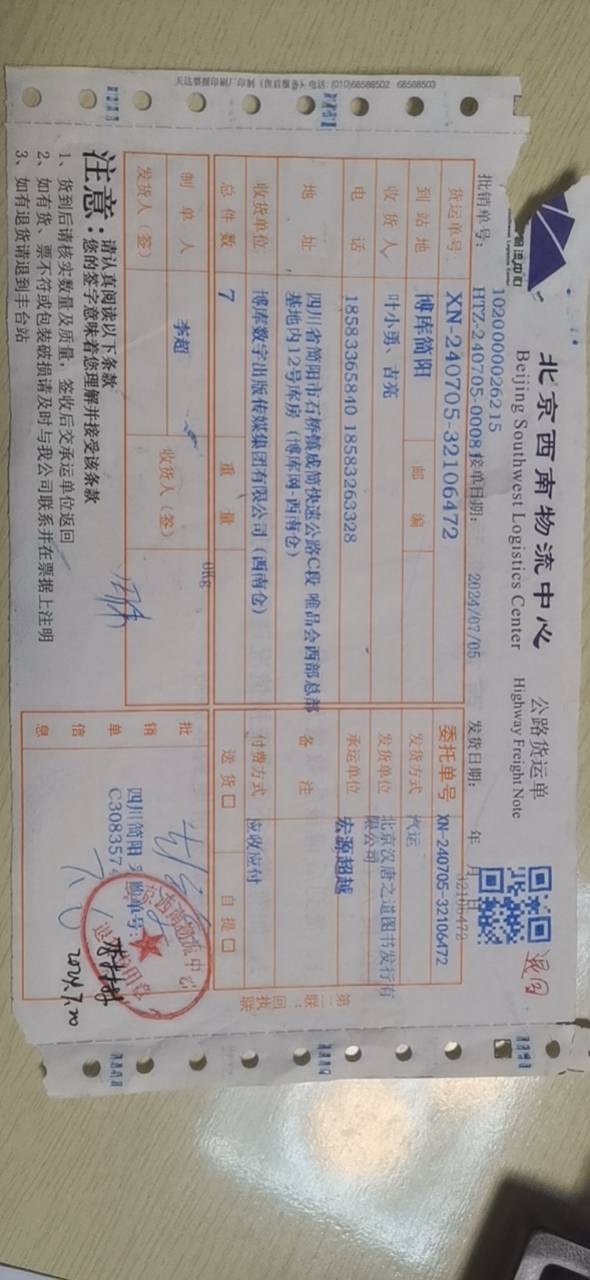 天达票据印刷厂印制（售后服务）电话：(010)68588502 68588503
北京西南物流中心 公路货运单
Beijing Southwest Logistics Center Highway Freight Note
退回
10200000026215
批销单号： HTZ-240705-0008 接单日期： 2024/07/05 发货日期： 年 月 日
32106472
货运单号 XN-240705-32106472 委托单号 XN-240705-32106472
到站地 博库简阳 邮编 发货方式 汽运
收货人 叶小勇、古亮 发货单位 北京汉唐之道图书发行有限公司
电话 18583365840 18583263328 承运单位 宏源超越
地址 四川省简阳市石桥镇成简快速公路C段 唯品会西部总部
基地内12号库房（博库网-西南仓） 备注
收货单位 博库数字出版传媒集团有限公司（西南仓） 付费方式 应收应付
总件数 7 重量 0KG 送货 □ 自提 □
制单人 李超 收货人（签）
发货人（签）
批销单信息
四川简阳
C3083574
2024.7.20
第二联：回执联
注意：请认真阅读以下条款
您的签字意味着您理解并接受该条款
1、货到后请核实数量及质量，签收后交承运单位返回
2、如有货、票不符或包装破损请及时与我公司联系并在票据上注明
3、如有退货请退到丰台站